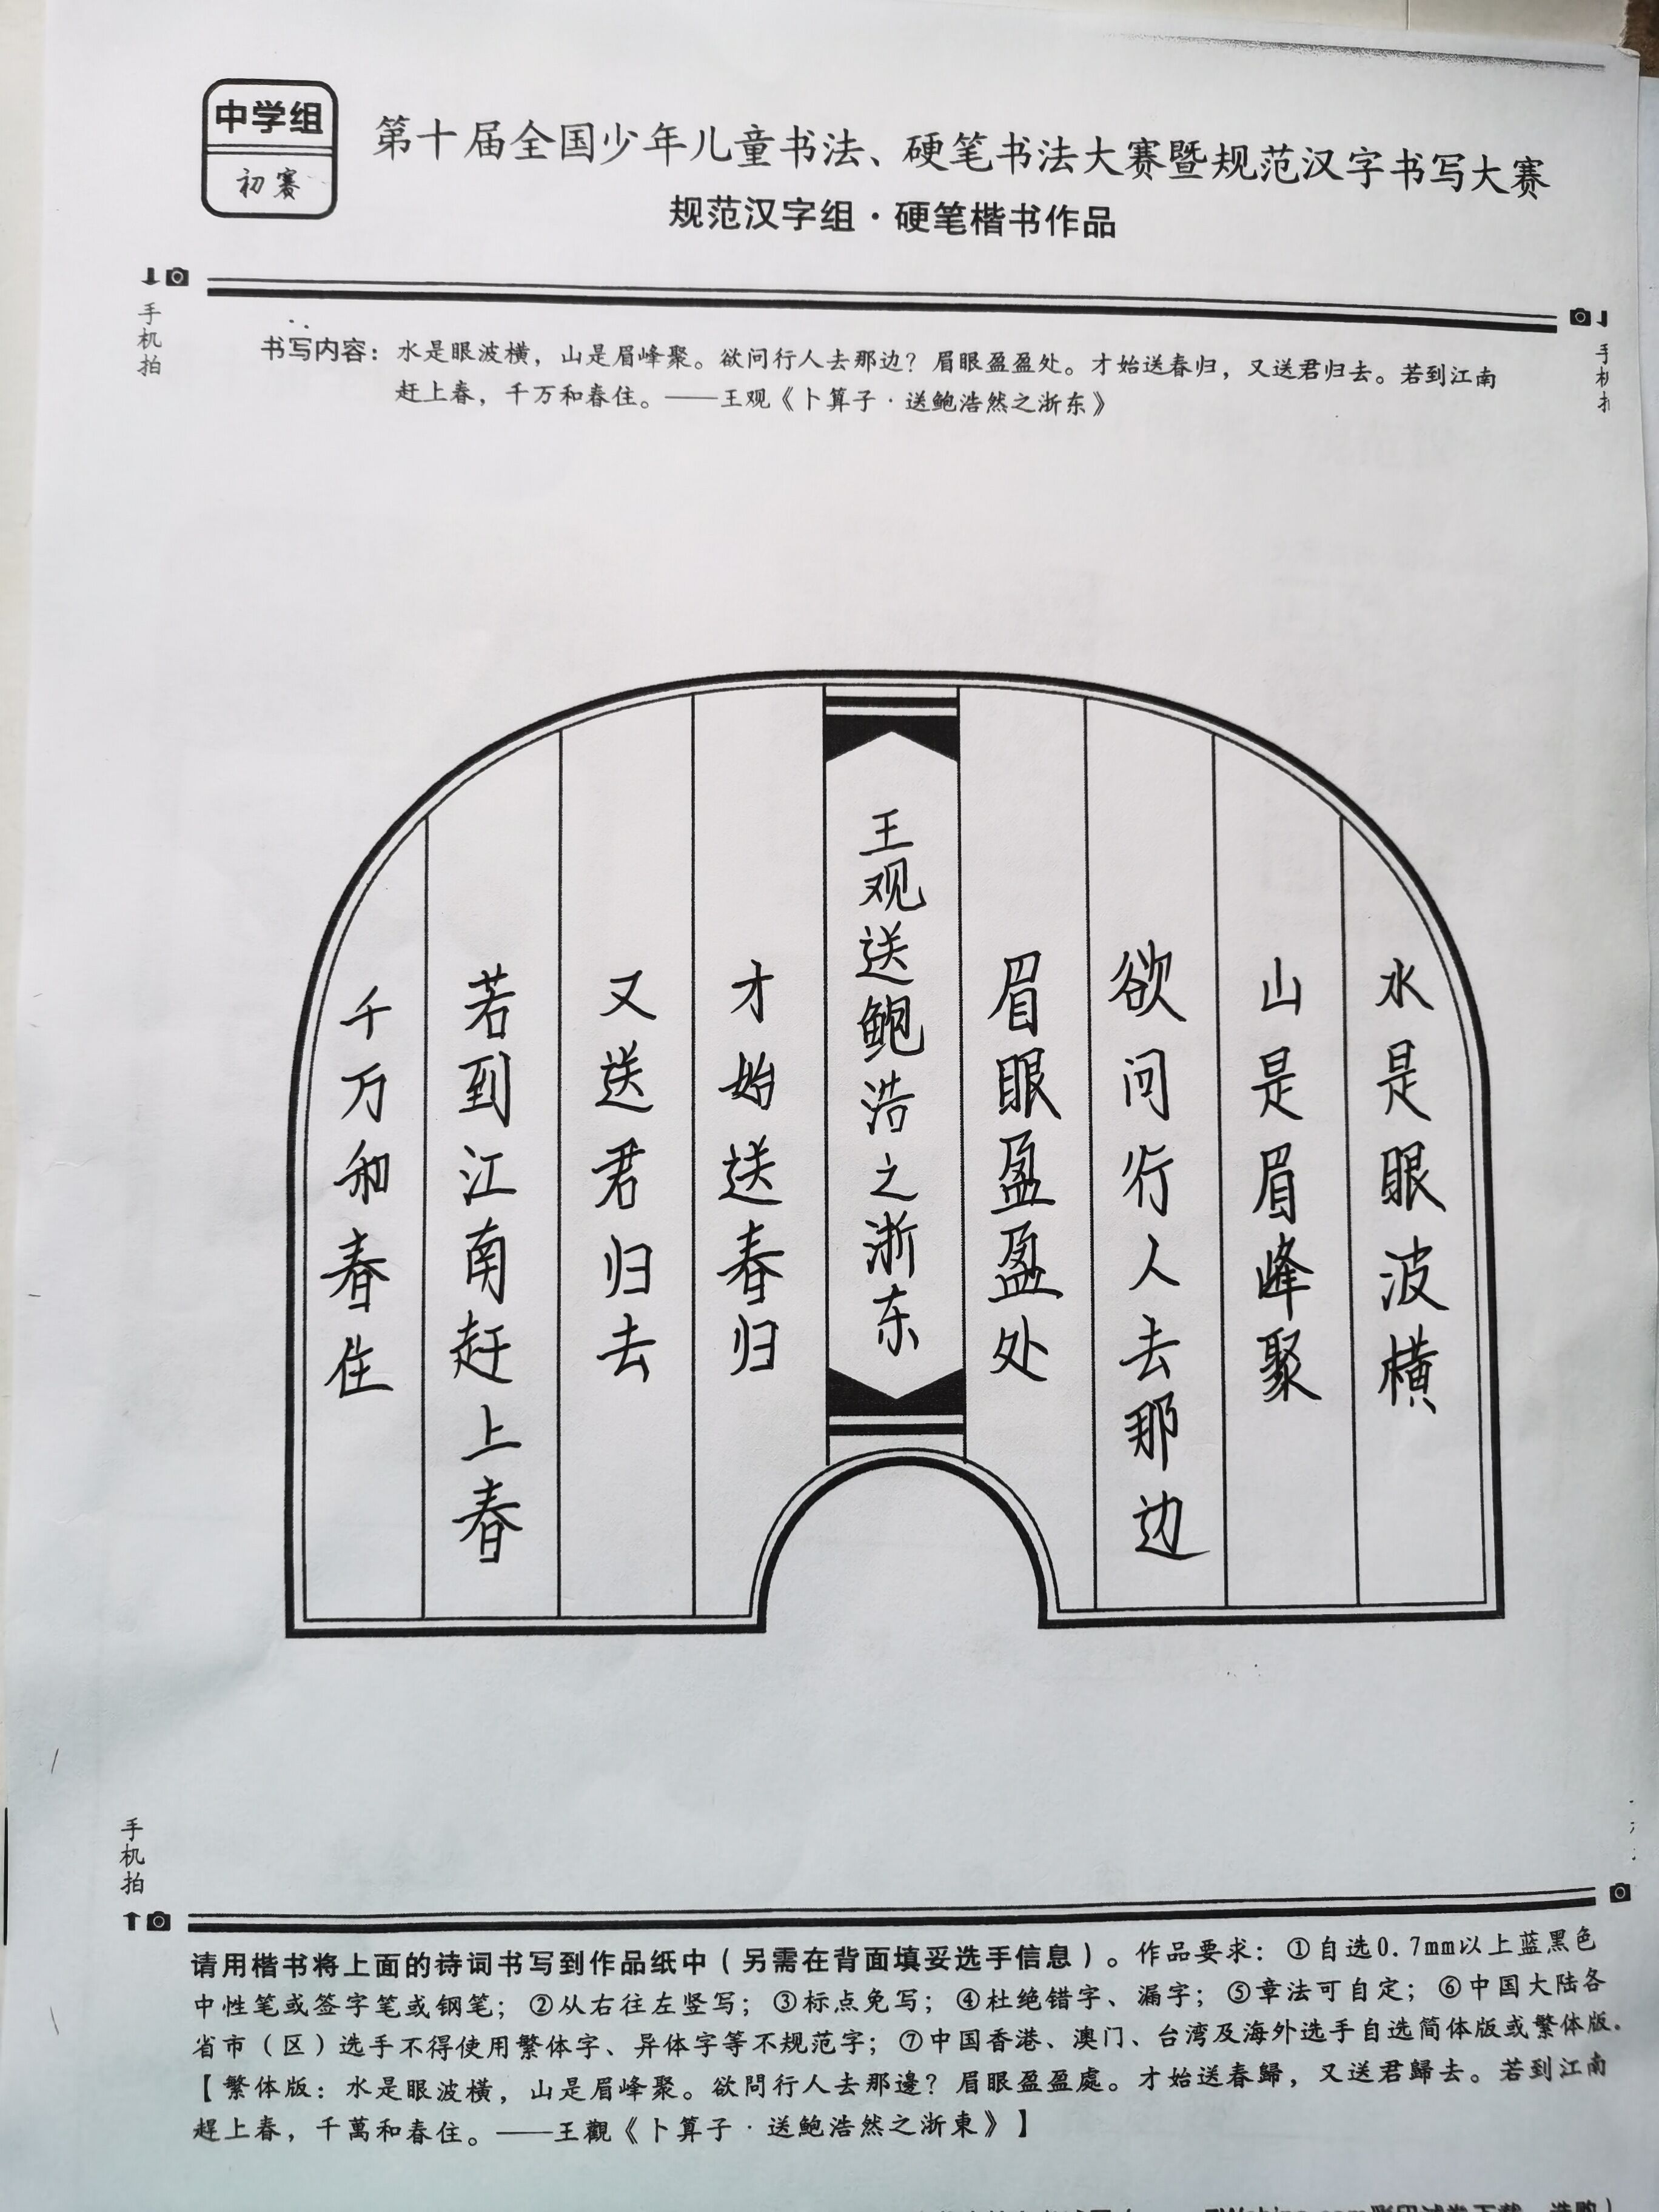 中学组
初赛
第十届全国少年儿童书法、硬笔书法大赛暨规范汉字书写大赛
规范汉字组·硬笔楷书作品
手机拍
手机拍
书写内容：水是眼波横，山是眉峰聚。欲问行人去那边？眉眼盈盈处。才始送春归，又送君归去。若到江南
赶上春，千万和春住。——王观《卜算子·送鲍浩然之浙东》
水是眼波横
山是眉峰聚
欲问行人去那边
眉眼盈盈处
王观送鲍浩之浙东
才始送春归
又送君归去
若到江南赶上春
千万和春住
手机拍
请用楷书将上面的诗词书写到作品纸中（另需在背面填妥选手信息）。作品要求：①自选0.7mm以上蓝黑色
中性笔或签字笔或钢笔；②从右往左竖写；③标点免写；④杜绝错字、漏字；⑤章法可自定；⑥中国大陆各
省市（区）选手不得使用繁体字、异体字等不规范字；⑦中国香港、澳门、台湾及海外选手自选简体版或繁体版。
【繁体版：水是眼波橫，山是眉峰聚。欲問行人去那邊？眉眼盈盈處。才始送春歸，又送君歸去。若到江南
趕上春，千萬和春住。——王觀《卜算子·送鮑浩然之浙東》】